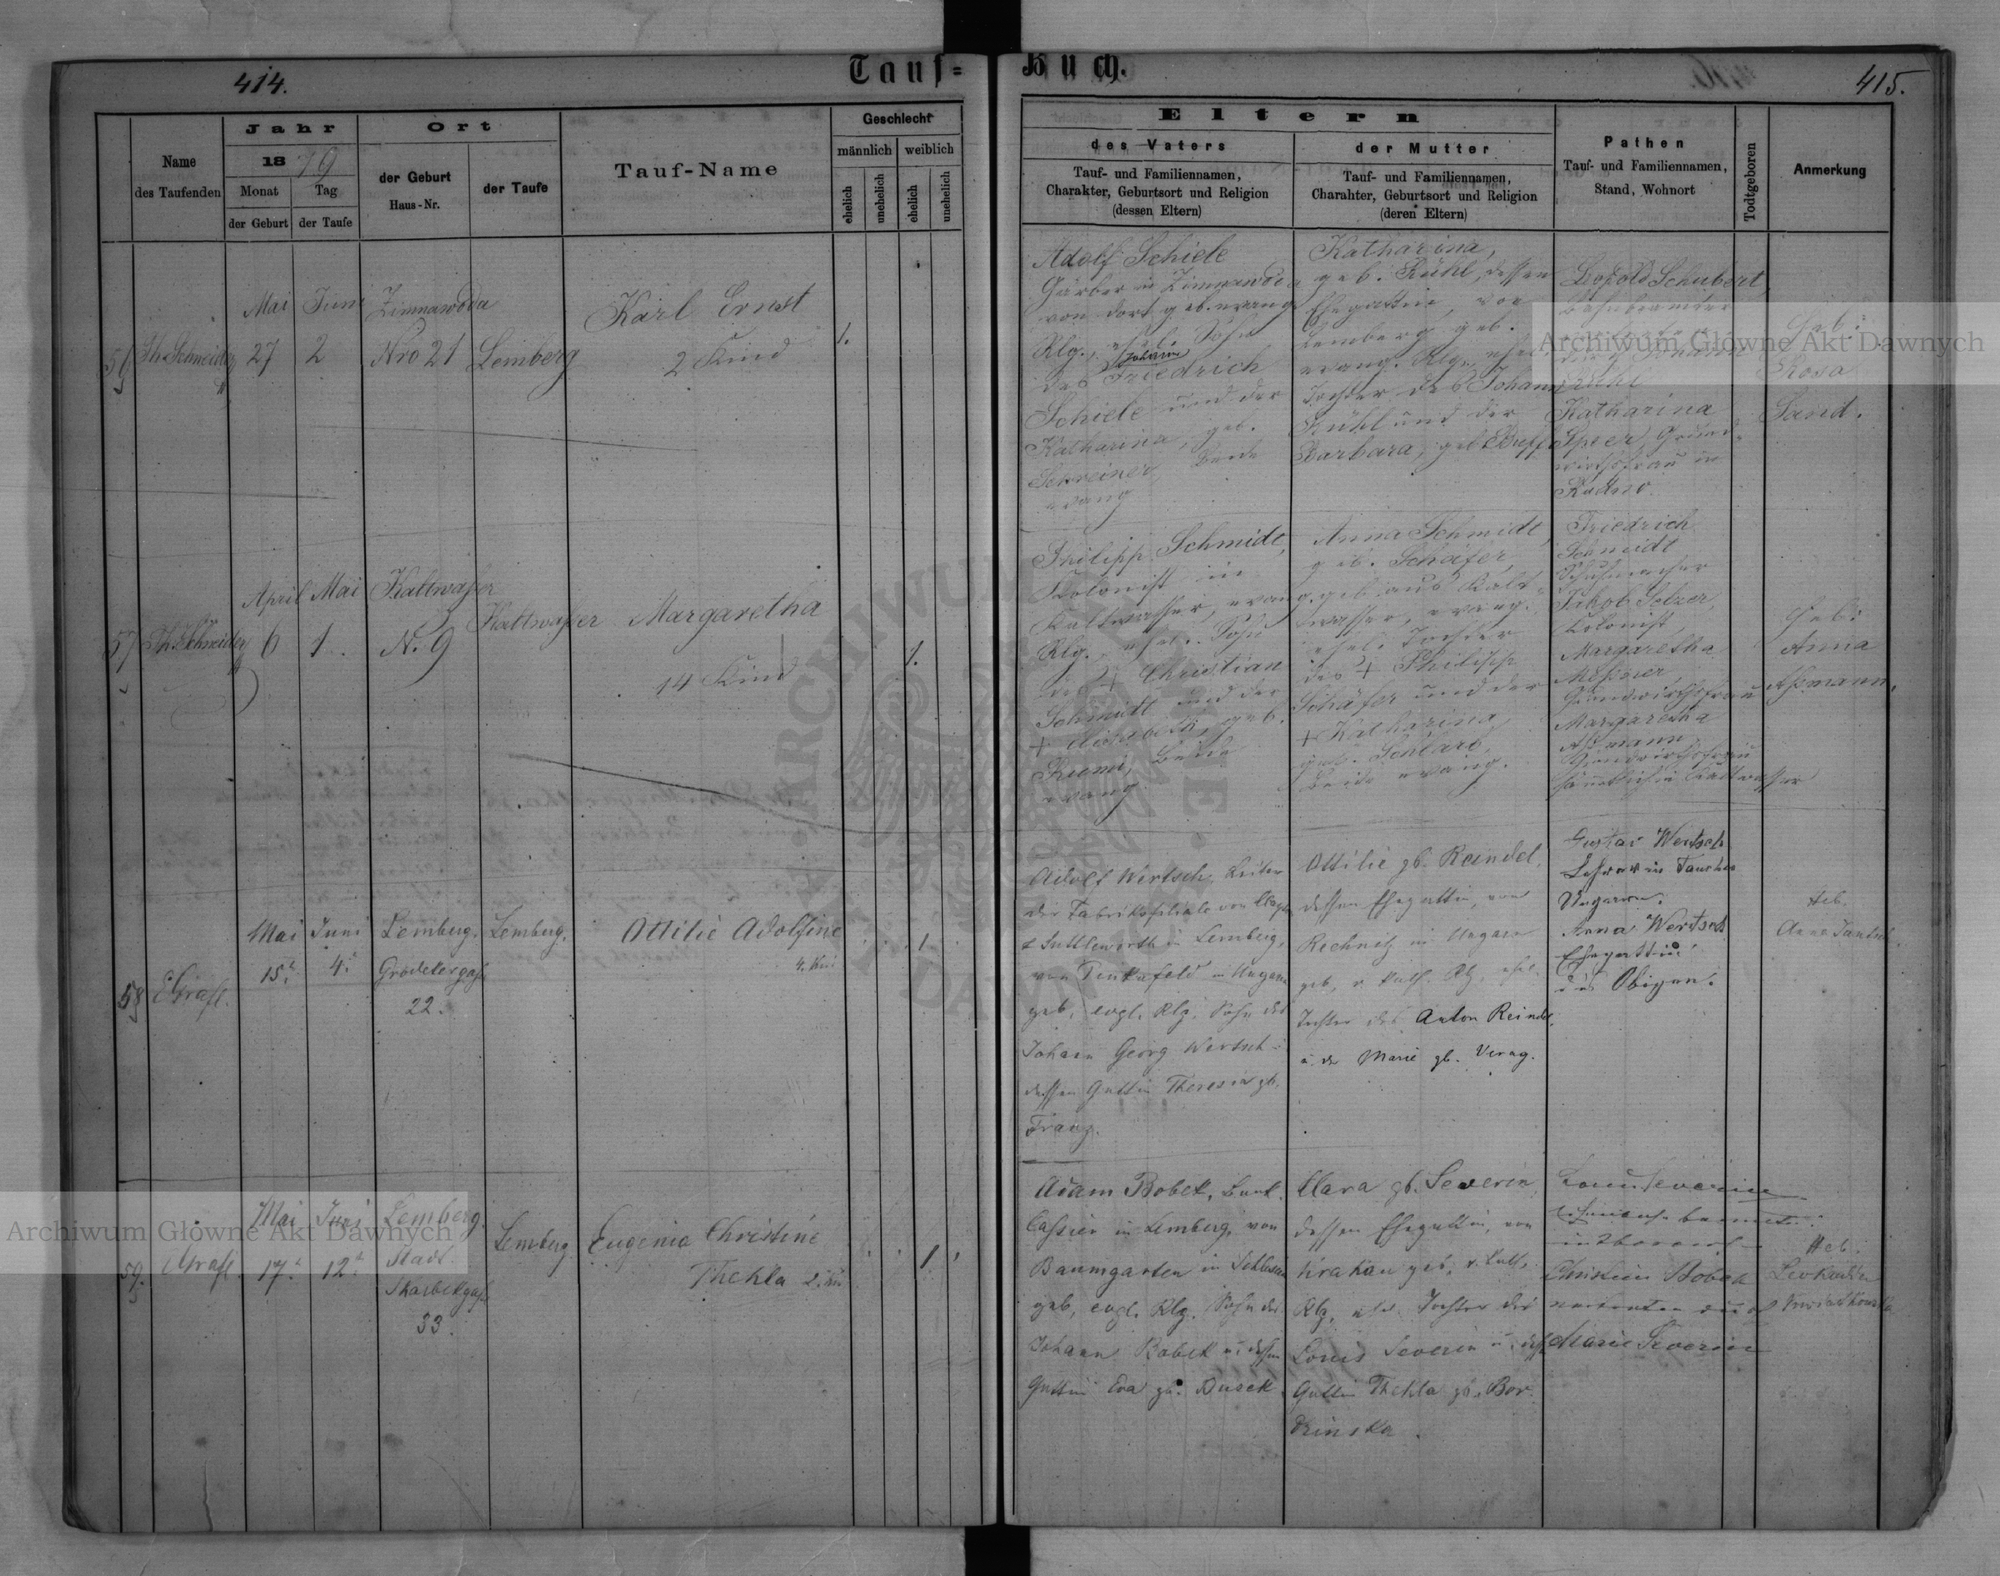 414.
Tauf=
Buch.
415.
Name
des Taufenden
Jahr
1879
Monat
Tag
der Geburt
der Taufe
Ort
der Geburt
Haus-Nr.
der Taufe
Tauf-Name
Geschlecht
männlich
weiblich
ehelich
unehelich
ehelich
unehelich
Eltern
des Vaters
Tauf- und Familiennamen,
Charakter, Geburtsort und Religion
(dessen Eltern)
der Mutter
Tauf- und Familiennamen,
Charahter, Geburtsort und Religion
(deren Eltern)
Pathen
Tauf- und Familiennamen,
Stand, Wohnort
Todtgeboren
Anmerkung
56
Th. Schneider
Mai
27
Juni
2
Zimnawoda
Nro 21
Lemberg
Karl Ernst
2 Kind
1.
Adolf Schiele
Gärber in Zimnawoda
von dort geb. evang
Rlg., ehel. Sohn
des Johann Friedrich
Schiele und der
Katharina, geb.
Schreiner, beide
evang
Katharina,
geb. Kühl, dessen
Ehegattin, von
Lemberg geb.
evang. Rlg., ehel.
Tochter des Johann
Kühl und der
Barbara, geb.
Leopold Schubert,
Bahnbeamter
Kühl
Katharina
Speer, Grund-
wirthsfrau in
Rudno.
Heb:
Rosa
Sand.
57
Th. Schneider
April
6
Mai
1.
Kaltwasser
N. 9
Kaltwasser
Margaretha
14 Kind
1.
Philipp Schmidt,
Kolonist in
Kaltwasser, evang.
Rlg., ehel. Sohn
des + Christian
Schmidt und der
+ Elisabeth, geb.
beide
evang
Anna Schmidt,
geb. Schäfer,
geb. aus Kalt-
wasser, evang.
ehel. Tochter
des + Philipp
Schäfer und der
+ Katharina,
geb. Schlarb,
beide evang.
Friedrich
Schmidt
Schuhmacher
Jakob Selzer,
Kolonist,
Margaretha
Messner,
Grundwirthsfrau
Margaretha
Assmann,
Grundwirthsfrau
sämmtlich in Kaltwasser
Heb:
Anna
Assmann.
58
EGraf.
Mai
15.
Juni
4.
Lemberg.
Grodekergasse
22.
Lemberg.
Ottilie Adolfine
4. Kind
1
Adolf Wertsch, Leiter
der Fabriksfiliale von Clayton
& Suttleworth in Lemberg,
von Pinkafeld in Ungarn
geb. evgl. Rlg. Sohn des
Johann Georg Wertsch u.
dessen Gattin Theresia gb.
Franz.
Ottilie gb. Reindel,
dessen Ehegattin, von
Rechnitz in Ungarn
geb., r. kath. Rlg. ehel.
Tochter des Anton Reindel
u. der Marie gb. Virag.
Gustav Wertsch
Lehrer in
Ungarn.
Anna Wertsch
Ehegattin
des Obigen.
Heb.
59.
EGraf.
Mai
17.
Juni
12.
Lemberg.
Stadt
Skarbekgasse
33.
Lemberg.
Eugenia Christine
Thekla 2. Kind
1
Adam Bobek, Bank
Cassier in Lemberg, von
Baumgarten in Schlesien
geb. evgl. Rlg. Sohn des
Johann Bobek u. dessen
Gattin Eva gb. Dusek
Clara gb. Severin
dessen Ehegattin, von
Krakau geb. r. kath.
Rlg. ehel. Tochter des
Louis Severin u. dess
Gattin Thekla gb. Bor-
dzinska.
Louis Severin
Christine Bobek
Marie Severin
Heb.
Leokadia
Archiwum Główne Akt Dawnych
Archiwum Główne Akt Dawnych